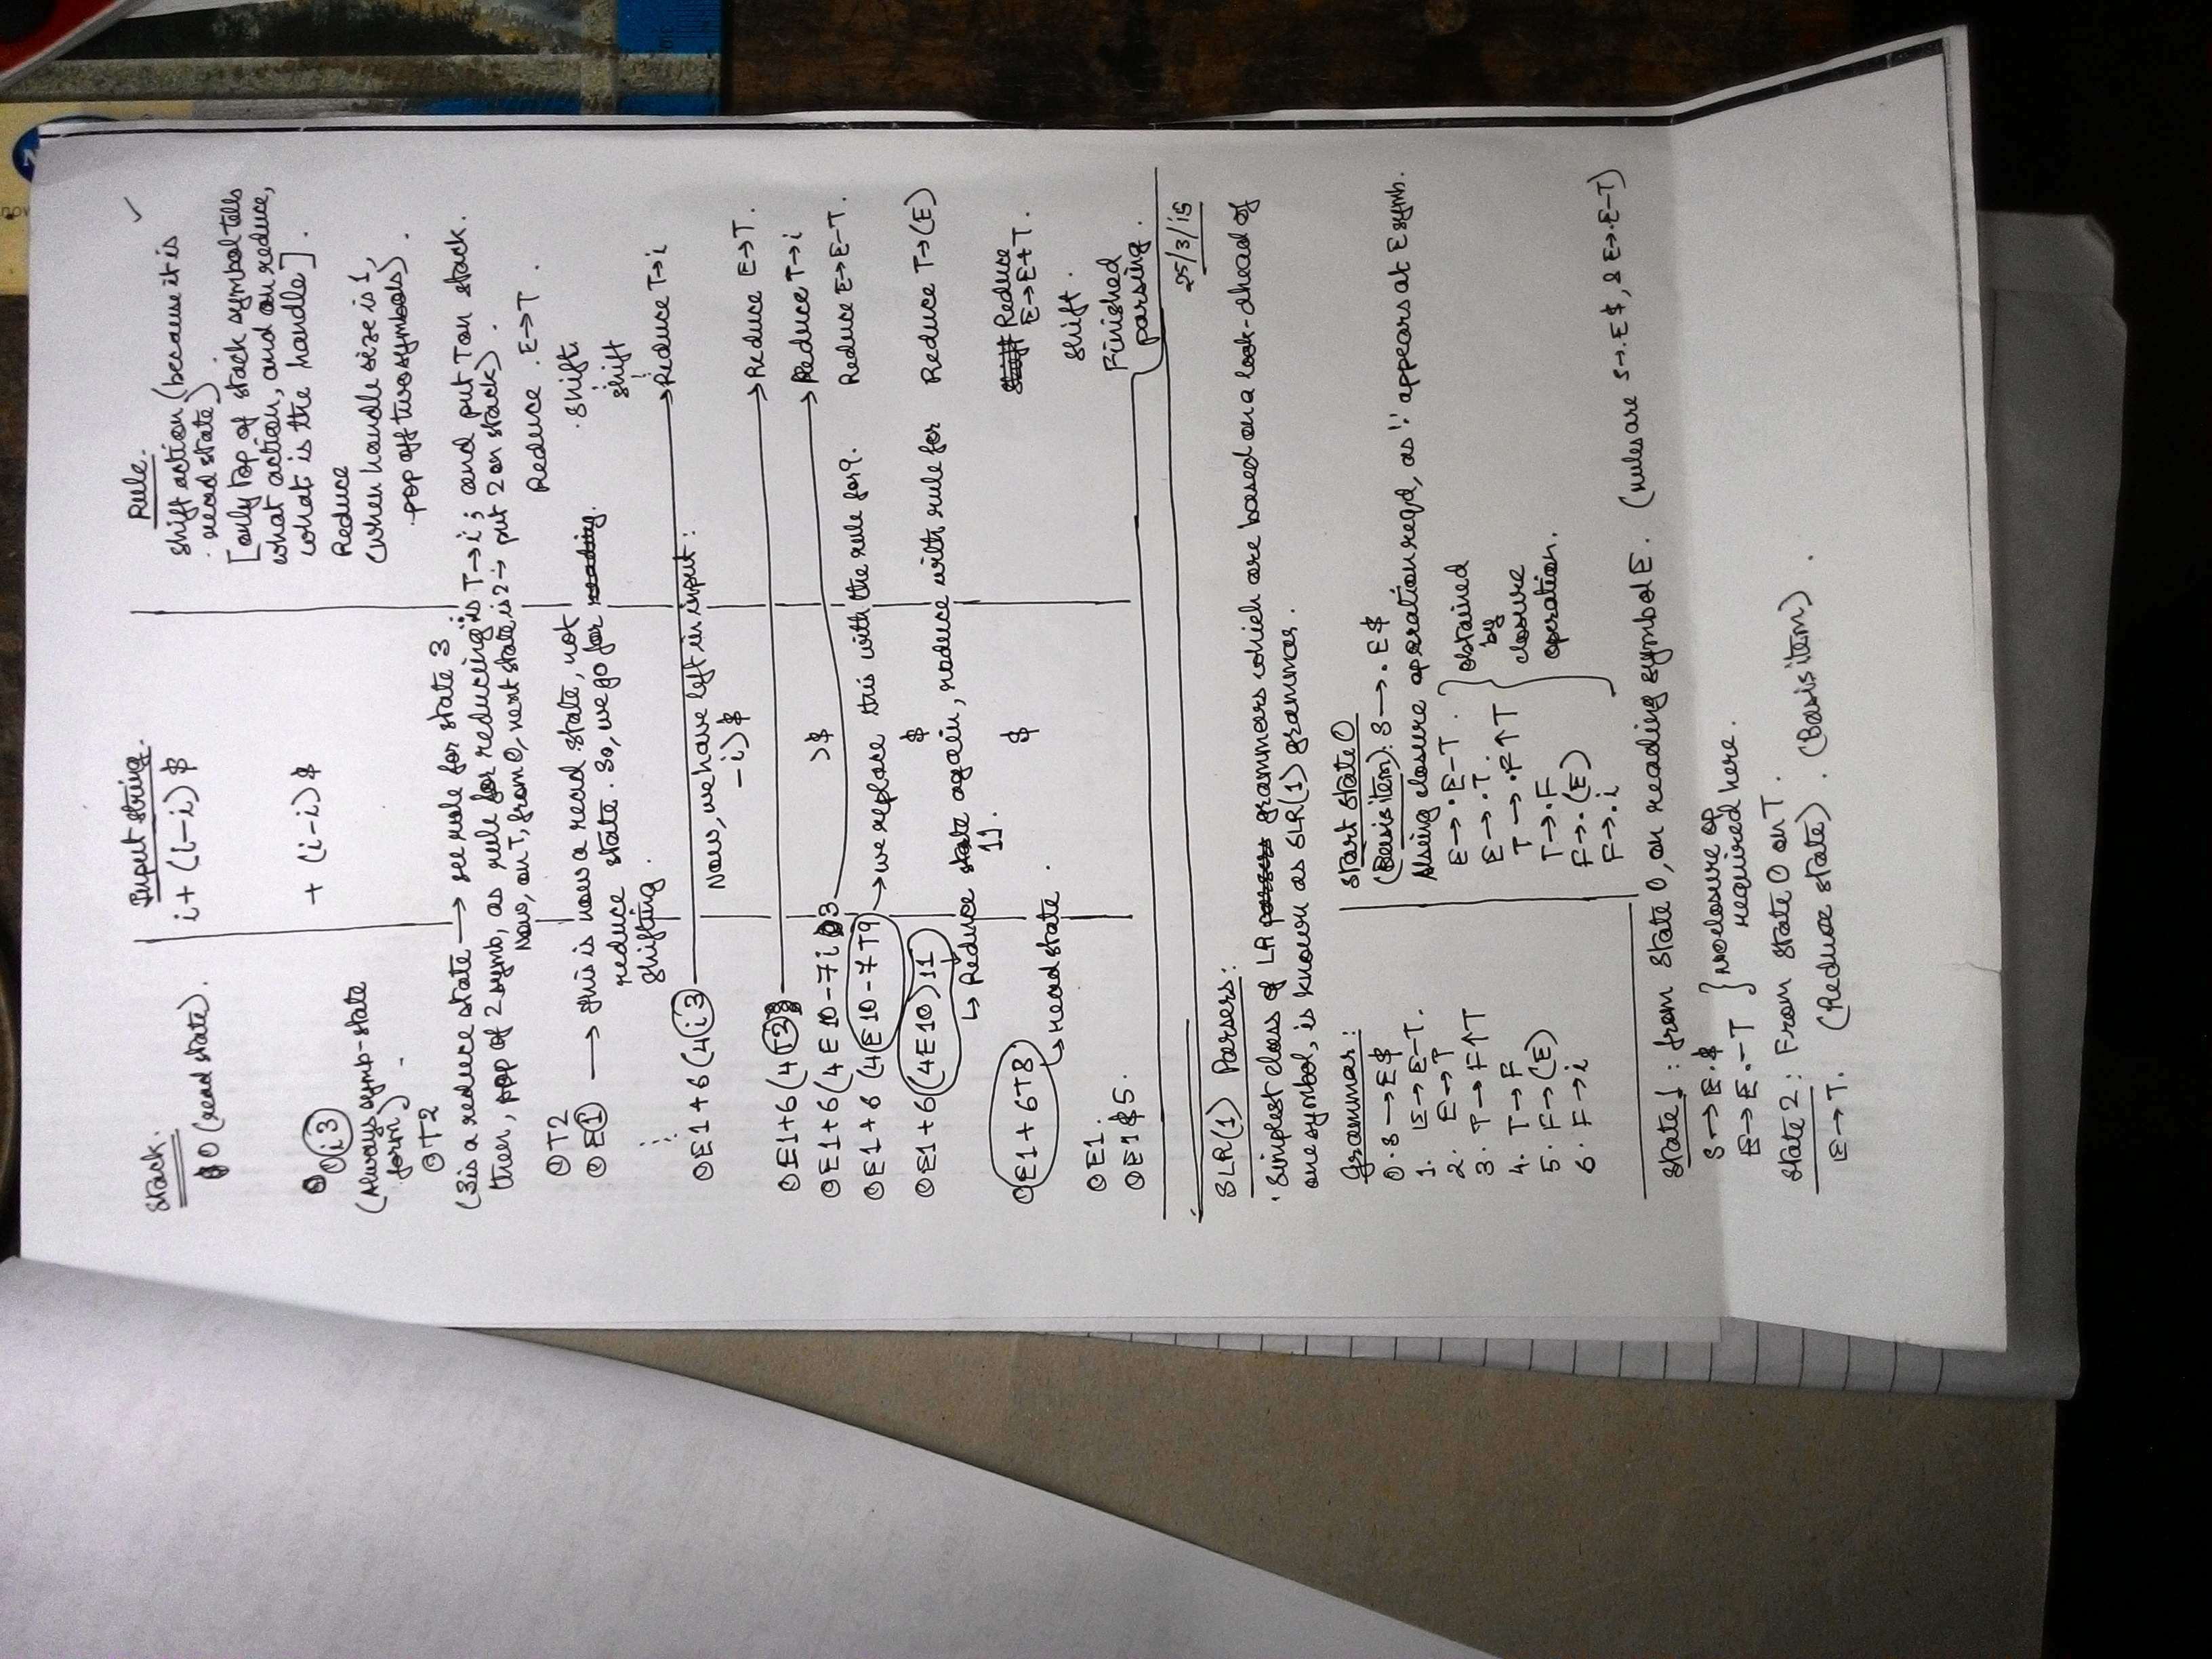 Stack. Input string. Rule.
0 (read state). i + (i-i) $ shift action (because it is
read state).
[only top of stack symbol tells
what action, and on reduce,
what is the handle].
0 i 3 + (i-i) $
Reduce
(Always symb-state (when handle size is 1,
form). pop off two symbols).
0T2
(3 is a reduce state → see rule for state 3.
then, pop of 2 symb, as rule for reducing is T→i ; and put T on stack.
Now, on T, from 0, next state is 2 → put 2 on stack).
0T2 Reduce E→T.
0E1 → This is now a read state, not shift.
reduce state. So, we go for reading. shift
shifting.
0E1+6(4i3 → Reduce T→i
Now, we have left in input:
-i)$
0E1+6(4T2 → Reduce E→T.
0E1+6(4E10-7i3 )$ → Reduce T→i
0E1+6(4E10-7T9 → we replace this with the rule for 9. Reduce E→E-T.
0E1+6(4E10)11 $ Reduce T→(E)
↳ Reduce state again, reduce with rule for
11.
0E1+6T8 $ shift Reduce
E→E+T.
↳ read state.
0E1. shift.
0E1$5. Finished
parsing.
25/3/15
SLR(1) Parsers:
Simplest class of LR parsers grammars which are based on a look-ahead of
one symbol, is known as SLR(1) grammar.
Grammar:
0. S → E$
1. E → E-T.
2. E → T
3. T → F↑T
4. T → F
5. F → (E)
6. F → i
Start state 0
(Basis item): S → .E$
Using closure operation reqd, as '.' appears at E symb.
E → .E-T.
E → .T.
T → .F↑T
T → .F
F → .(E)
F → .i
obtained
by
closure
operation.
State 1 : from State 0, on reading symbol E. (rules are S→.E$, & E→.E-T)
S → E.$
E → E.-T
No closure op
required here.
State 2 : From State 0 on T.
E → T. (Reduce state). (Basis item).